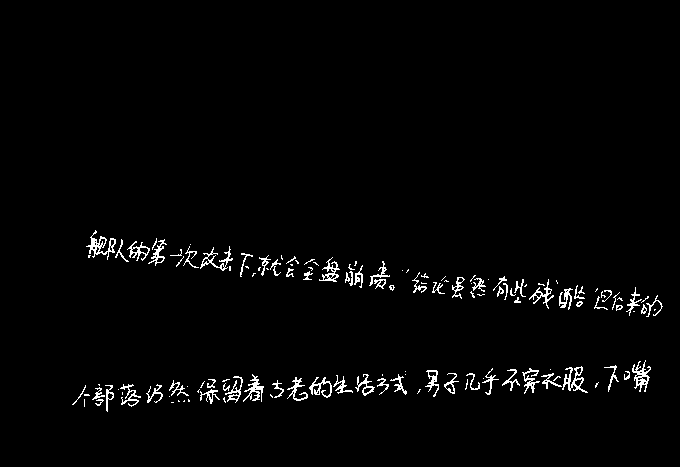 舰队的第一次攻击下,就会全盘崩溃。”结论虽然有些残酷但后来的
个部落仍然保留着古老的生活方式,男子几乎不穿衣服,下嘴